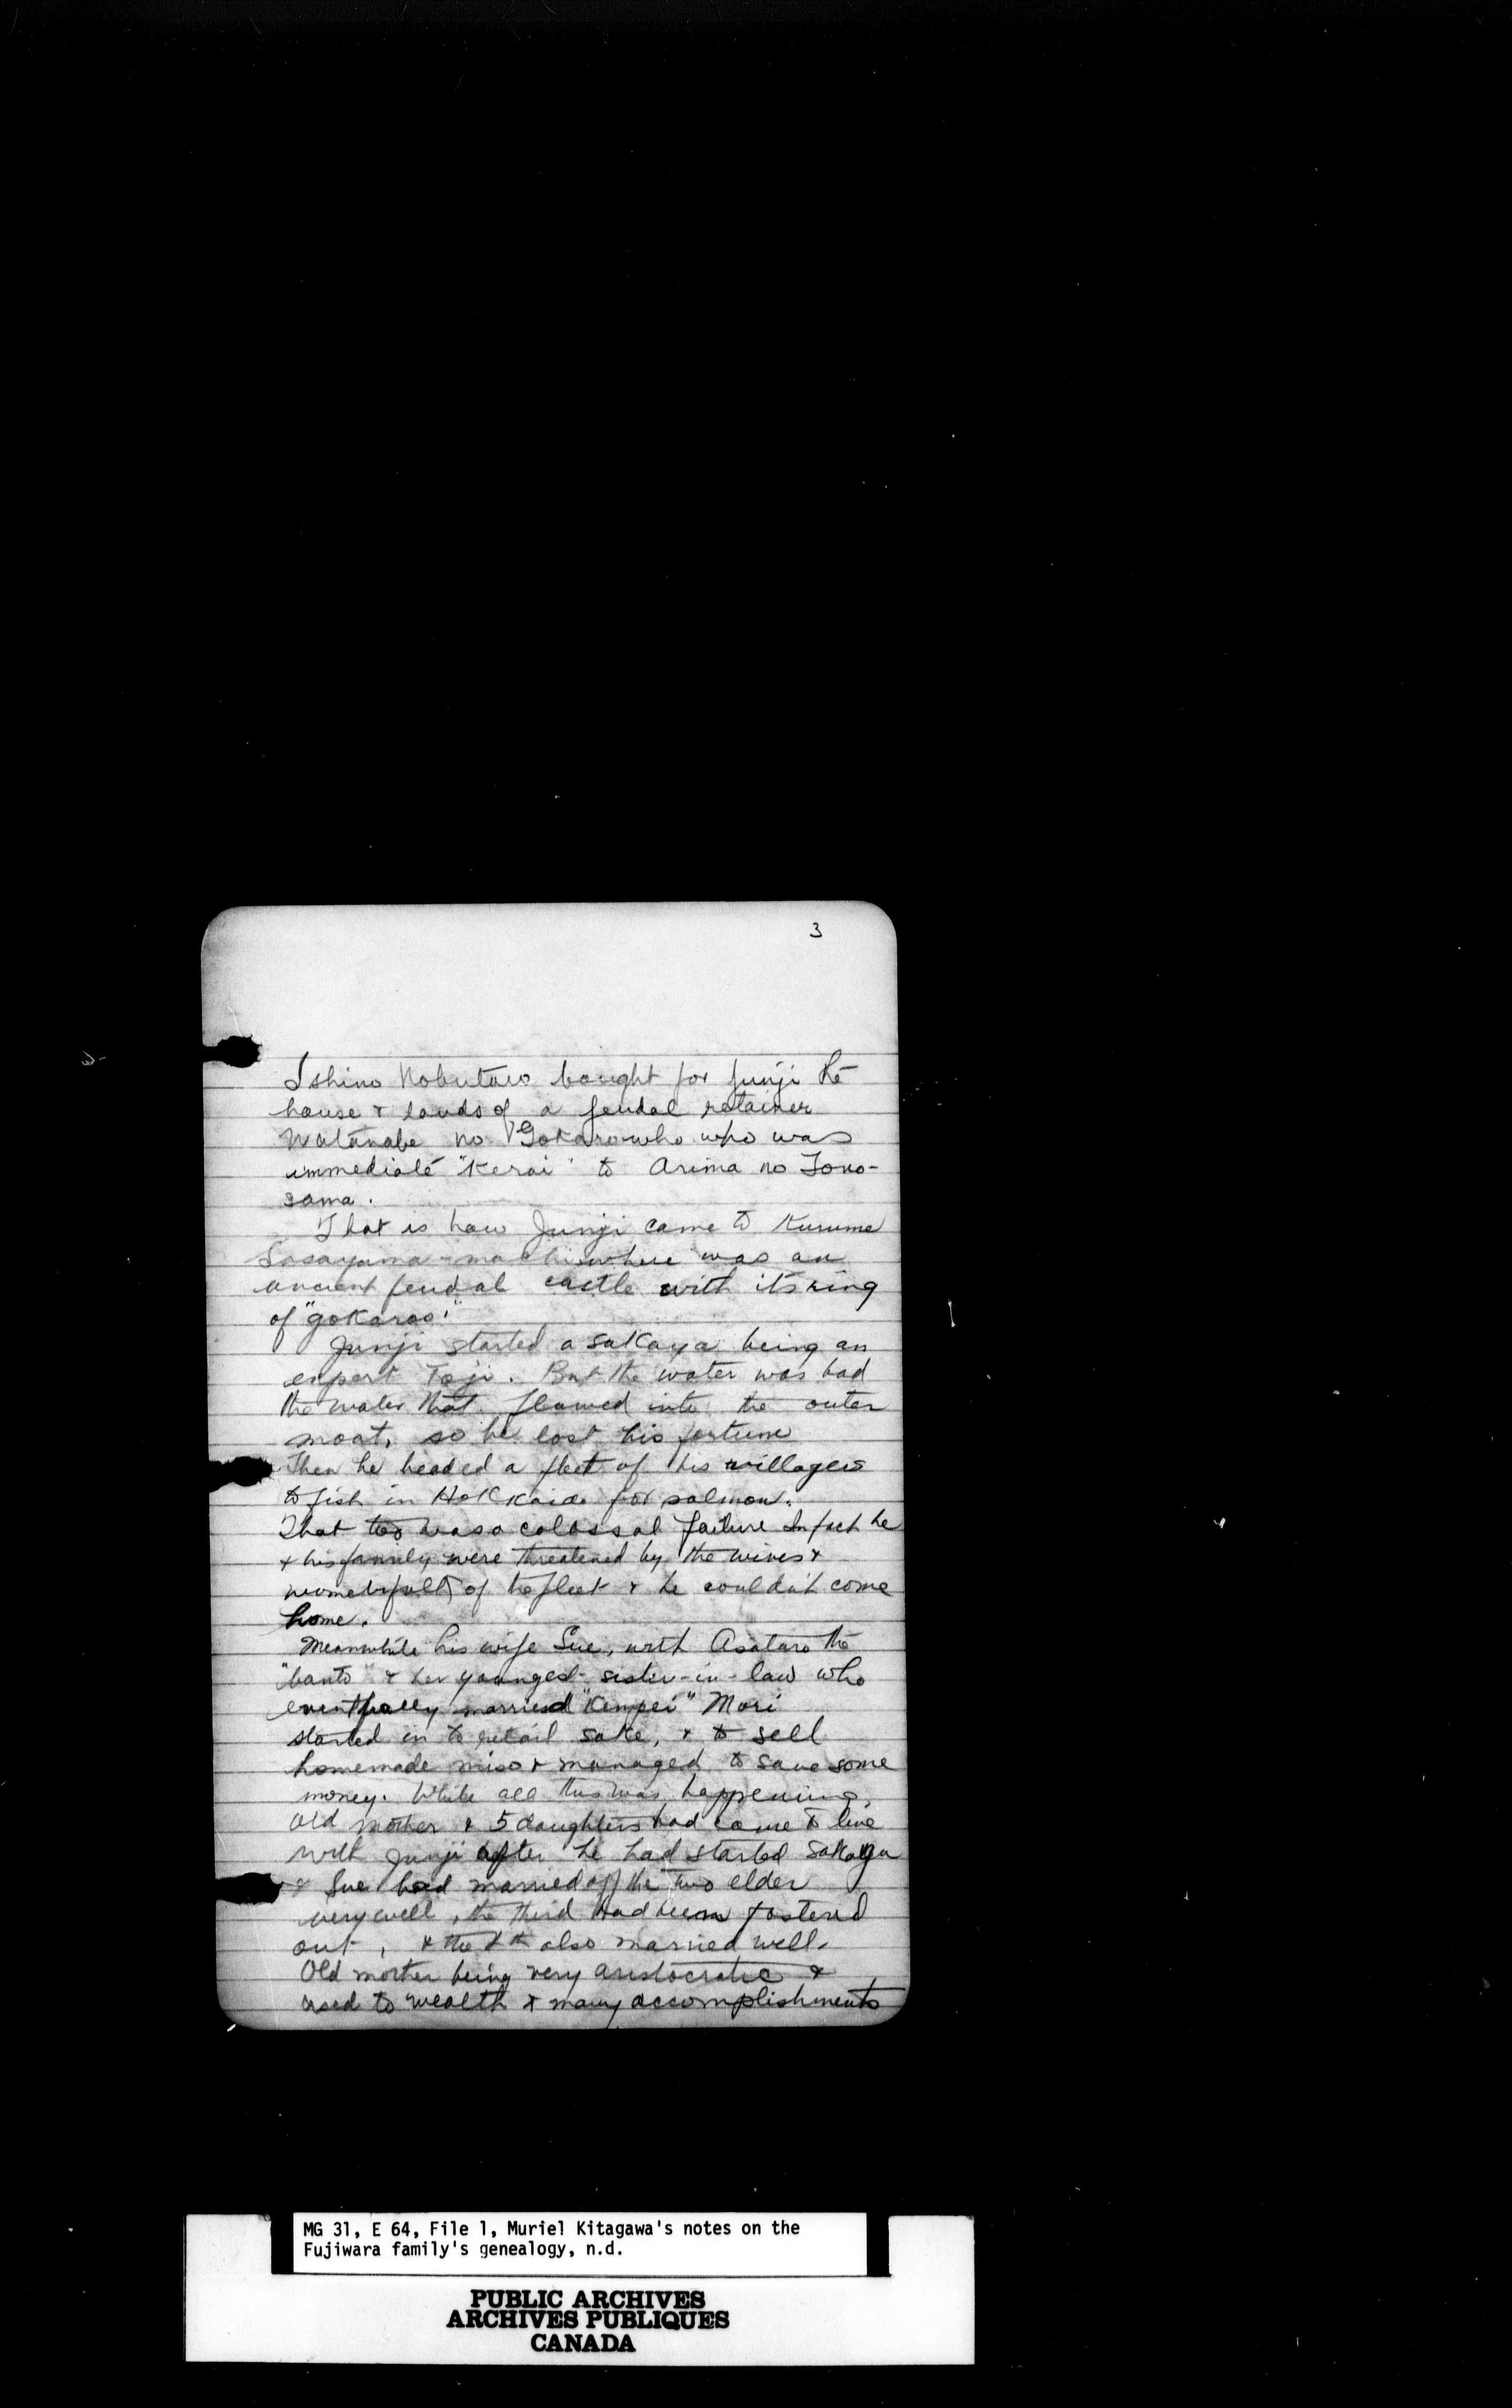 3
Ishino Nobutaro bought for Junji the
house & lands of a feudal retainer
Watanabe no Gokaro who who was
immediate "Kerai" to Arima no Tono-
sama.
That is how Junji came to Kurume
Sasayama-machi where was an
ancient feudal castle with its ring
of "gokaros."
Junji started a sakaya being an
expert Toji. But the water was bad
the water that flowed into the outer
moat, so he lost his fortune
Then he headed a fleet of his villagers
to fish in Hokkaido for salmon.
That too was a colossal failure In fact he
& his family were threatened by the wives &
womenfolk of the fleet & he couldn't come
home.
Meanwhile his wife Sue, with Asataro the
"banto" & her youngest sister-in-law who
eventually married "Kempei" Mori
started in to retail sake, & to sell
homemade miso & managed to save some
money. While all this was happening,
Old mother & 5 daughters had come to live
with Junji after he had started Sakaya
& Sue had married off the two elder
very well, the third had been fostered
out, & the 4th also married well.
Old mother being very aristocratic &
used to wealth & many accomplishments
MG 31, E 64, File 1, Muriel Kitagawa's notes on the
Fujiwara family's genealogy, n.d.
PUBLIC ARCHIVES
ARCHIVES PUBLIQUES
CANADA